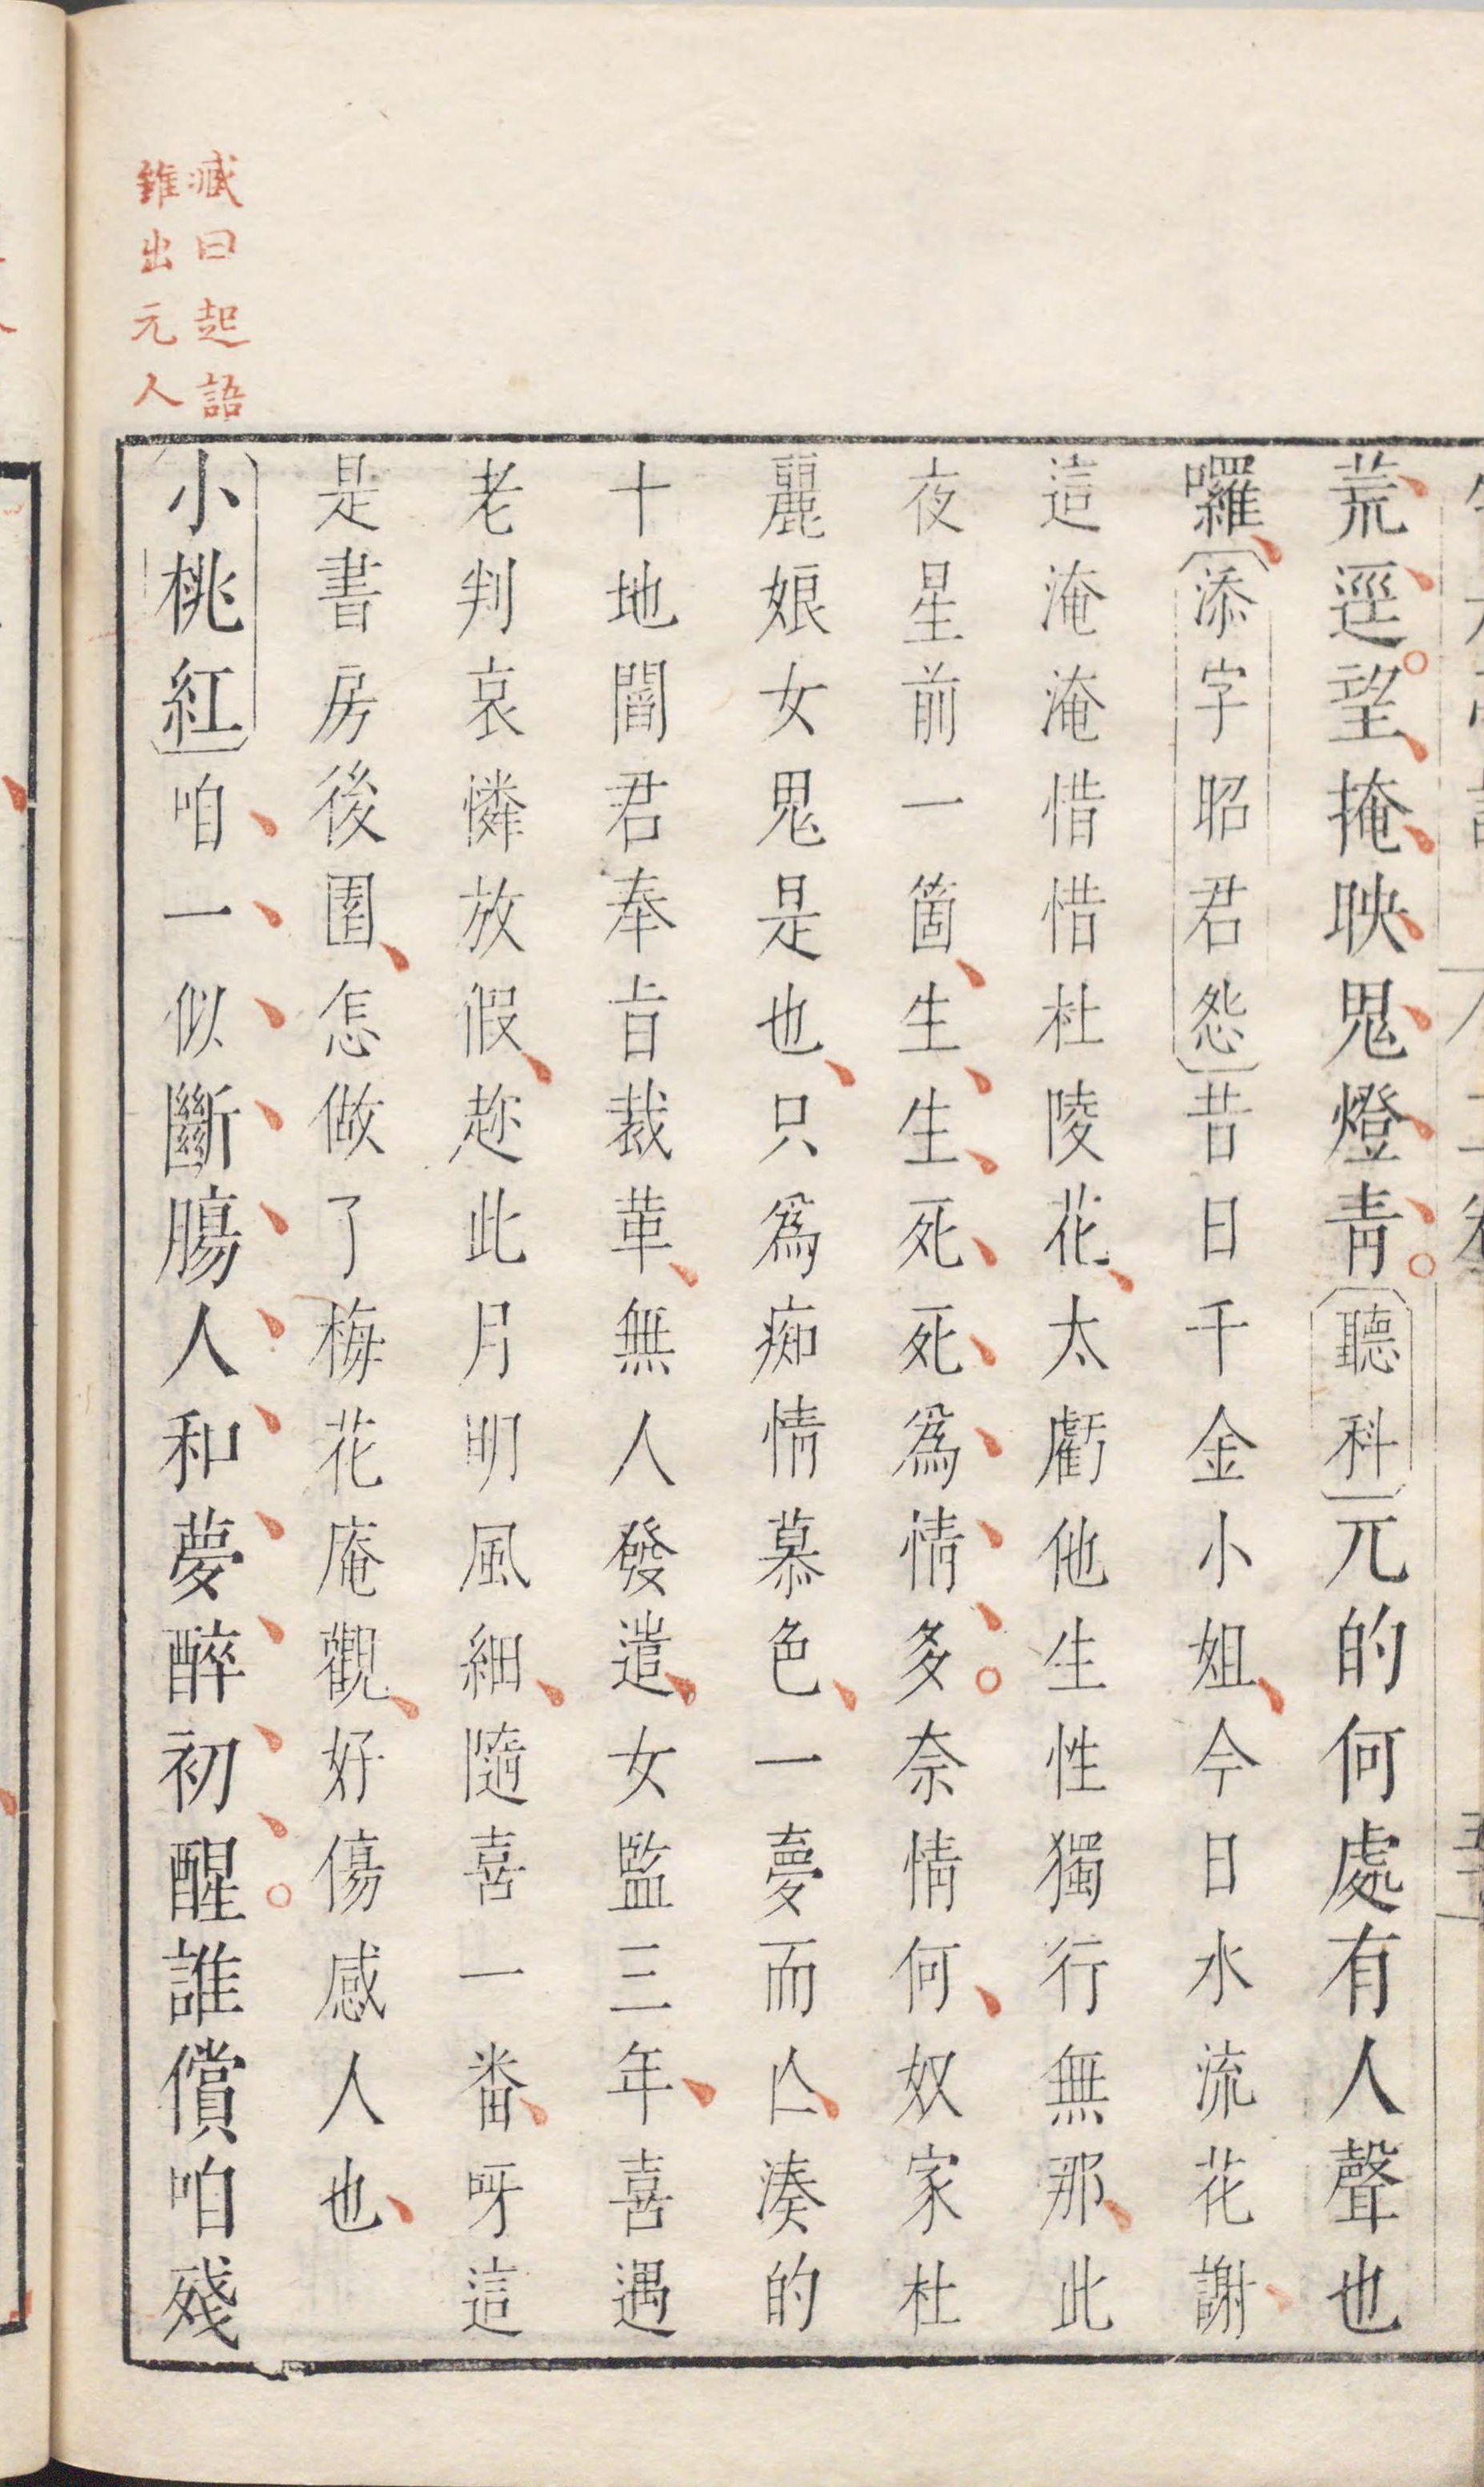 臧曰起語
雖出元人
荒逕望掩映鬼燈青〔聽科〕兀的何處有人聲也
囉〔添字昭君怨〕昔日千金小姐今日水流花謝
這淹淹惜惜杜陵花太虧他生性獨行無那此
夜星前一箇生生死死爲情多奈情何奴家杜
麗娘女鬼是也只爲痴情慕色一夢而亾湊的
十地閻君奉旨裁革無人發遣女監三年喜遇
老判哀憐放假趂此月明風細隨喜一番呀這
是書房後園怎做了梅花庵觀好傷感人也
〔小桃紅〕咱一似斷膓人和夢醉初醒誰償咱殘